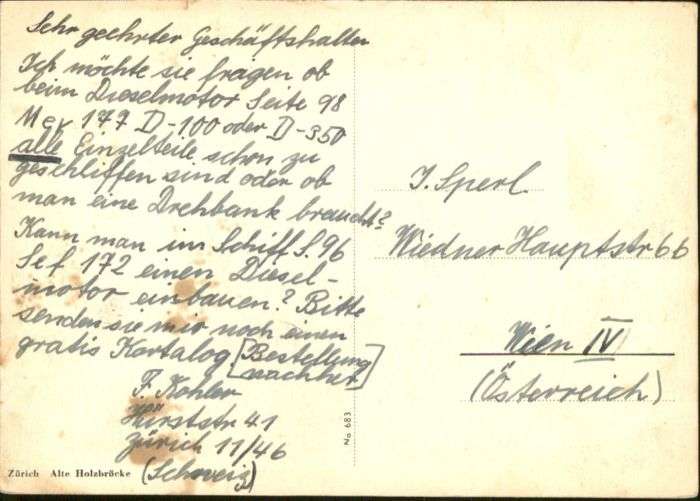 Sehr geehrter Geschäftshalter
Ich möchte sie fragen ob
beim Dieselmotor Seite 98
Mev 177 D-100 oder D-350
alle Einzelteile schon zu
geschliffen sind oder ob
man eine Drehbank braucht?
Kann man im Schiff S. 96
Sef 172 einen Diesel-
motor einbauen? Bitte
senden sie mir noch einen
gratis Kartalog [Bestellung
nachher]
F. Kohler
Hürststr 41
Zürich 11/46
(Schweiz)
Zürich Alte Holzbrücke
No 683
J. Sperl.
Wiedner Hauptstr 66
Wien IV
(Österreich)